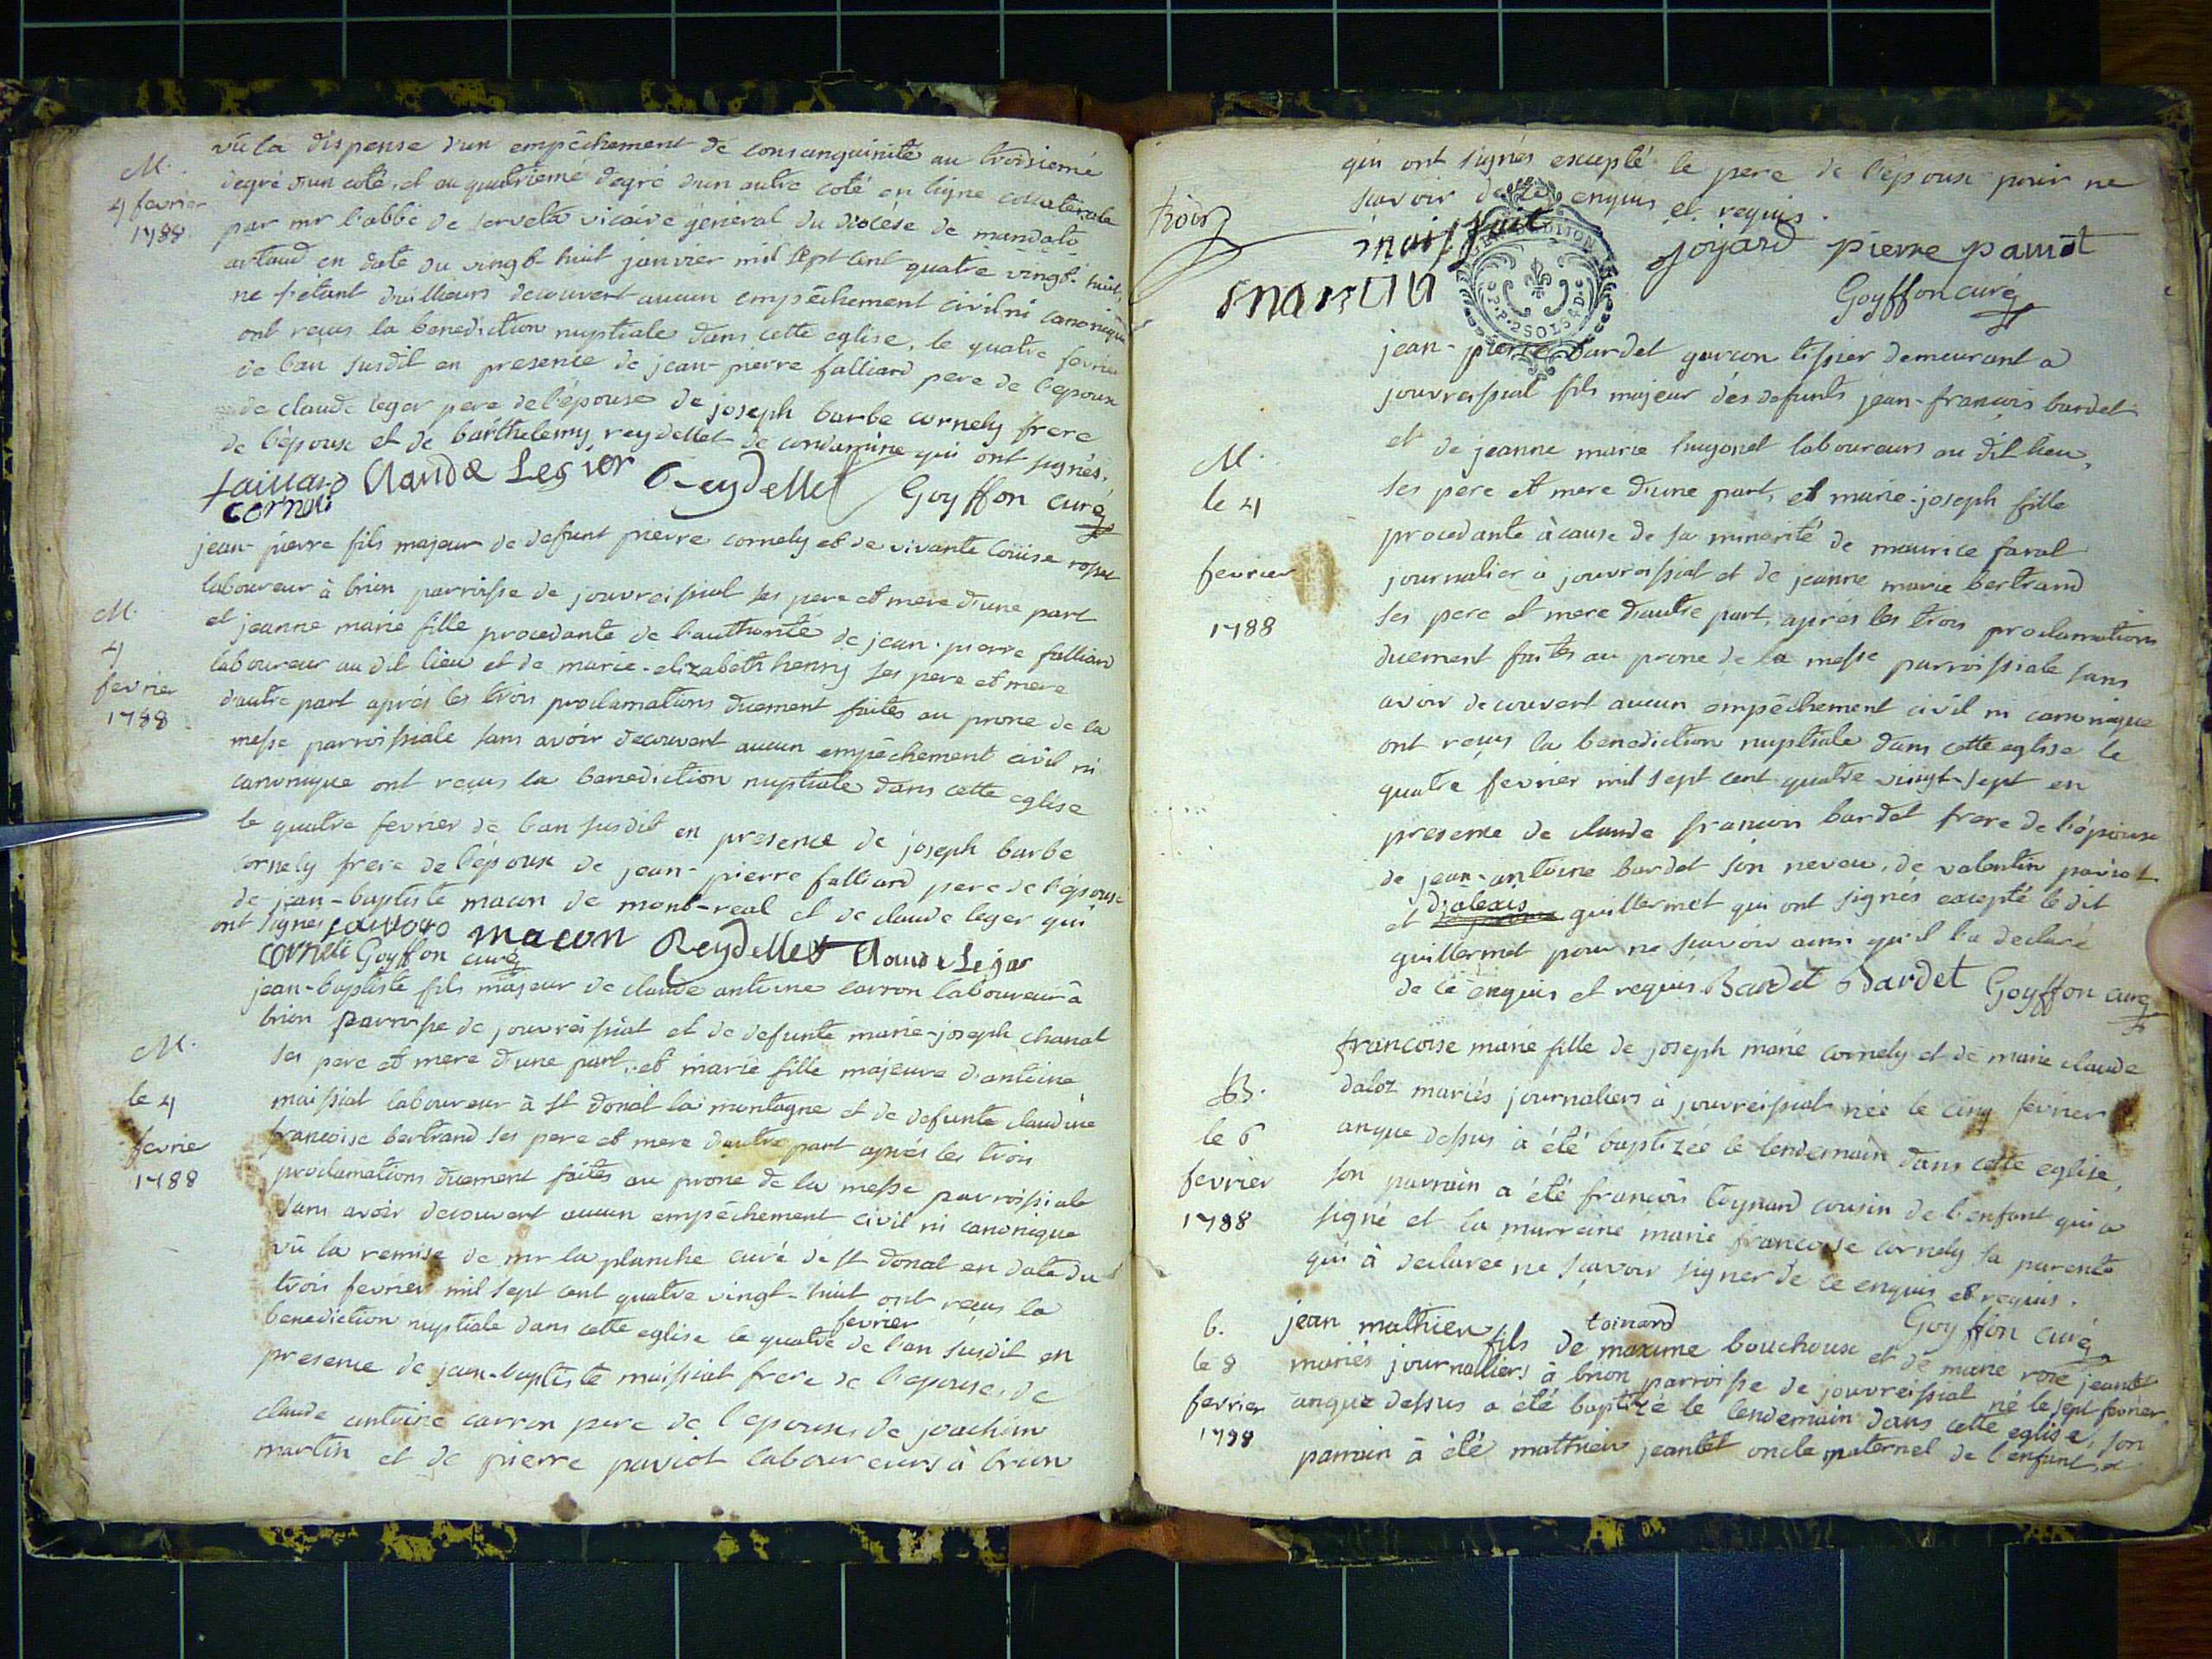 M.
4 fevrier
1788
vû la dispense d'un empêchement de consanguinité au troisiemé
degré d'un coté, et au quatriemé degré d'un autre coté en ligne collaterale
par mr l'abbé de serveta vicaire général du diocése de mandato
artaud en date du vingt-huit janvier mil sept cent quatre vingt-huit,
ne s'etant d'aillieurs decouvert aucun empêchement civil ni canonique
ont reçus la benediction nuptiale dans cette eglise, le quatre fevrier
de l'an susdit en presence de jean-pierre falliard pere de l'epoux
de claude leger pere de l'épouse de joseph barbe cornely frere
de l'épouse et de barthelemy reydellet de condamine qui ont signés.
faillard Claude Legier Reydellet Goyffon curé
corneli
M.
4
fevrier
1788
jean-pierre fils majeur de defunt pierre cornely et de vivante louise rosset
laboureur à brion parroisse de jouvreissiat ses pere et mere d'une part
et jeanne marie fille procedante de l'authorité de jean-pierre falliard
laboureur au dit lieu et de marie-elizabeth henry ses pere et mere
d'autre part aprés les trois proclamations duement faites au prone de la
messe parroissiale sans avoir decouvert aucun empêchement civil ni
canonique ont reçus la benediction nuptiale dans cette eglise
le quatre fevrier de l'an susdit en presence de joseph barbe
cornely frere de l'époux de jean-pierre falliard pere de l'épouse
de jean-baptiste macon de mont-real et de claude leger qui
ont signes faillard macon Reydellet Claude Legier
corneli Goyffon curé
M.
le 4
fevrier
1788
jean-baptiste fils majeur de claude antoine carron laboureur à
brion parroisse de jouvreissiat et de defunte marie-joseph chanal
ses pere et mere d'une part, et marie fille majeure d'antoine
maissiat laboureur à st donat la montagne et de defunte claudine
francoise bertrand ses pere et mere d'autre part aprés les trois
proclamations duement faites au prone de la messe parroissiale
sans avoir decouvert aucun empêchement civil ni canonique
vû la remise de mr la planche curé de st donat en date du
trois fevrier mil sept cent quatre vingt-huit ont reçus la
benediction nuptiale dans cette eglise le quatre fevrier de l'an susdit en
presence de jean-baptiste maissiat frere de l'epouse, de
claude antoine carron pere de l'epoux, de joachim
martin et de pierre paviot laboureurs à brion
trois
qui ont signés excepté le pere de l'épouse pour ne
scavoir de ce enquis et requis.
maissiat joyard pierre paviot
martin Goyffon curé
2 SOLS
M.
le 4
fevrier
1788
jean-pierre bardet garcon tissier demeurant a
jouvreissiat fils majeur des defunts jean-francois bardet
et de jeanne marie hugonet laboureurs au dit lieu,
ses pere et mere d'une part, et marie-joseph fille
procedante à cause de sa minorité de maurice faval
journalier à jouvreissiat et de jeanne marie bertrand
ses pere et mere d'autre part, aprés les trois proclamations
duement faites au prone de la messe parroissiale sans
avoir decouvert aucun empêchement civil ni canonique
ont reçus la benediction nuptiale dans cette eglise le
quatre fevrier mil sept cent quatre vingt-sept en
presence de claude francois bardet frere de l'épouse
de jean-antoine bardet son neveu, de valentin paviot
et d'alexis guillermet qui ont signés excepté le dit
guillermet pour ne scavoir ainsi qu'il l'a declaré
de ce enquis et requis. Bardet Bardet Goyffon curé
B.
le 6
fevrier
1788
francoise marie fille de joseph marie cornely et de marie claude
daloz mariés journaliers à jouvreissiat née le cinq fevrier
an que dessus à été baptizée le lendemain dans cette eglise,
son parrain a été francois toynard cousin de l'enfant qui a
signé et la marreine marie francoise cornely sa parente
qui à declarée ne scavoir signer de ce enquis et requis.
toinard Goyffon curé
b.
le 8
fevrier
1788
jean mathieu fils de maxime bouchoux et de marie rose jeantet
mariés journaliers à brion parroisse de jouvreissiat né le sept fevrier
an que dessus a été baptizé le lendemain dans cette eglise, son
parrain à été mathieu jeantet oncle maternel de l'enfant, et